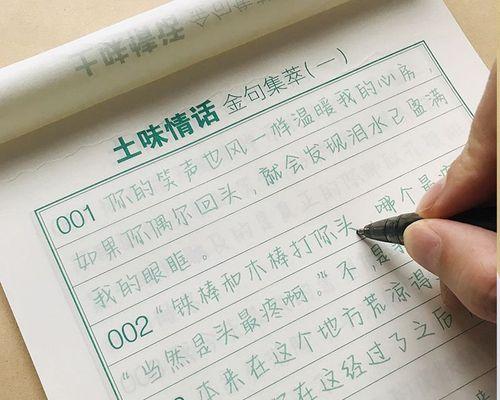 土味情话 金句集萃(一)
001 你的笑声也风一样温暖我的心房,
如果你偶尔回头,就会发现泪水已盈满
我的眼眶。
002 "铁棒和木棒打你头,哪个最
"当然是头最疼啊。"不,是
本来在这个地方荒凉得
在这经过了之后